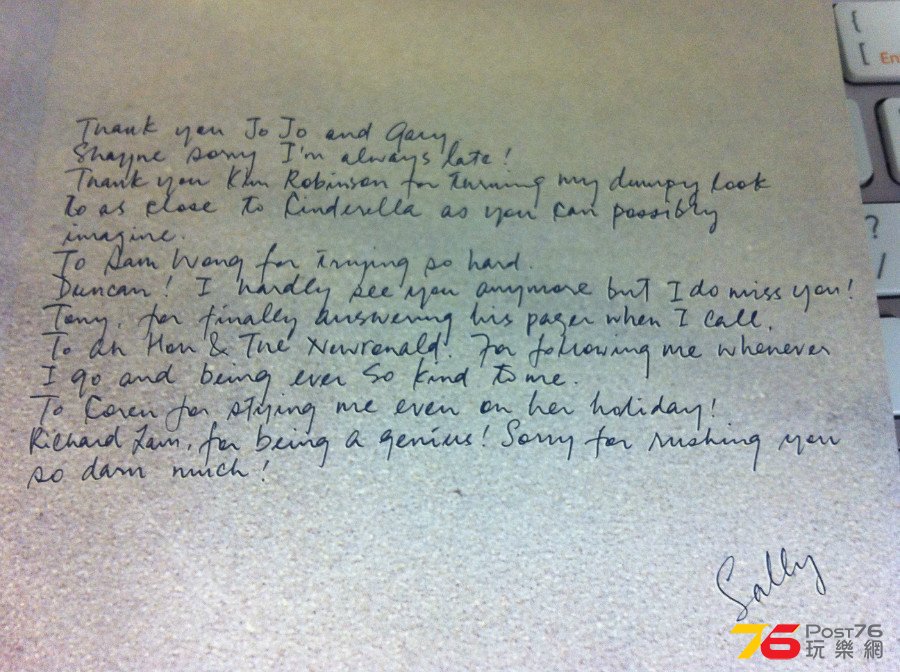 Thank you Jo Jo and Gary
Shayne sorry I'm always late!
Thank you Kim Robinson for turning my dumpy look
to as close to Cinderella as you can possibly
imagine.
To Sam Wong for trying so hard.
Duncan! I hardly see you anymore but I do miss you!
Tony, for finally answering his pager when I call.
To Ah Hon & The Newronald. For following me whenever
I go and being ever so kind to me.
To Coren for styling me even on her holiday!
Richard Lam, for being a genius! Sorry for rushing you
so darn much!
Sally
76 POST76
玩樂網
{
[ En
?
/